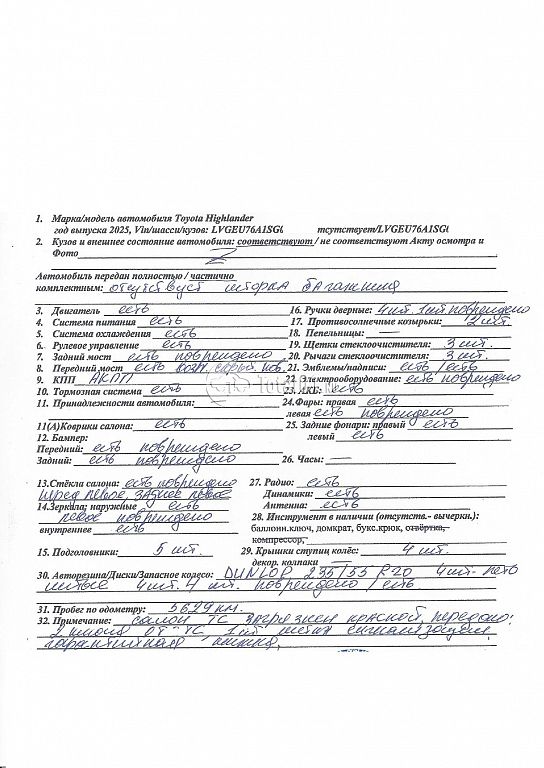 1. Марка/модель автомобиля Toyota Highlander
год выпуска 2025, Vin/шасси/кузов: LVGEU76A1SG тсутствует/LVGEU76A1SG
2. Кузов и внешнее состояние автомобиля: соответствуют / не соответствуют Акту осмотра и
Фото
Автомобиль передан полностью / частично
комплектным: отсутствует шторка багажника
3. Двигатель есть
4. Система питания есть
5. Система охлаждения есть
6. Рулевое управление есть
7. Задний мост есть повреждено
8. Передний мост есть возм. скрыт. пов.
9. КПП АКПП
10. Тормозная система есть
11. Принадлежности автомобиля:
11(А)Коврики салона: есть
12. Бампер:
Передний: есть повреждено
Задний: есть повреждено
13.Стёкла салона: есть повреждено
перед левое, заднее левое
14.Зеркала: наружные есть
левое повреждено
внутреннее есть
15. Подголовники: 5 шт.
16. Ручки дверные: 4 шт. 1 шт повреждено
17. Противосолнечные козырьки: 2 шт.
18. Пепельницы: —
19. Щетки стеклоочистителя: 3 шт.
20. Рычаги стеклоочистителя: 3 шт.
21. Эмблемы/надписи: есть / есть
22. Электрооборудование: есть
23. АКБ: есть
24.Фары: правая есть
левая есть повреждено
25. Задние фонари: правый есть
левый есть
26. Часы: —
27. Радио: есть
Динамики: есть
Антенна: есть
28. Инструмент в наличии (отсутств.- вычеркн.):
баллонн.ключ, домкрат, букс.крюк, отвёртка,
компрессор,
29. Крышки ступиц колёс: 4 шт.
декор. колпаки
30. Авторезина/Диски/Запасное колесо: DUNLOP 235/55 R20 4 шт- есть
литые 4 шт. 4 шт. повреждено / есть
31. Пробег по одометру: 5649 км.
32. Примечание: салон ТС загрязнен краской, передано:
2 ключа от ТС 1 шт метка сигнализации,
гарантийная книжка,